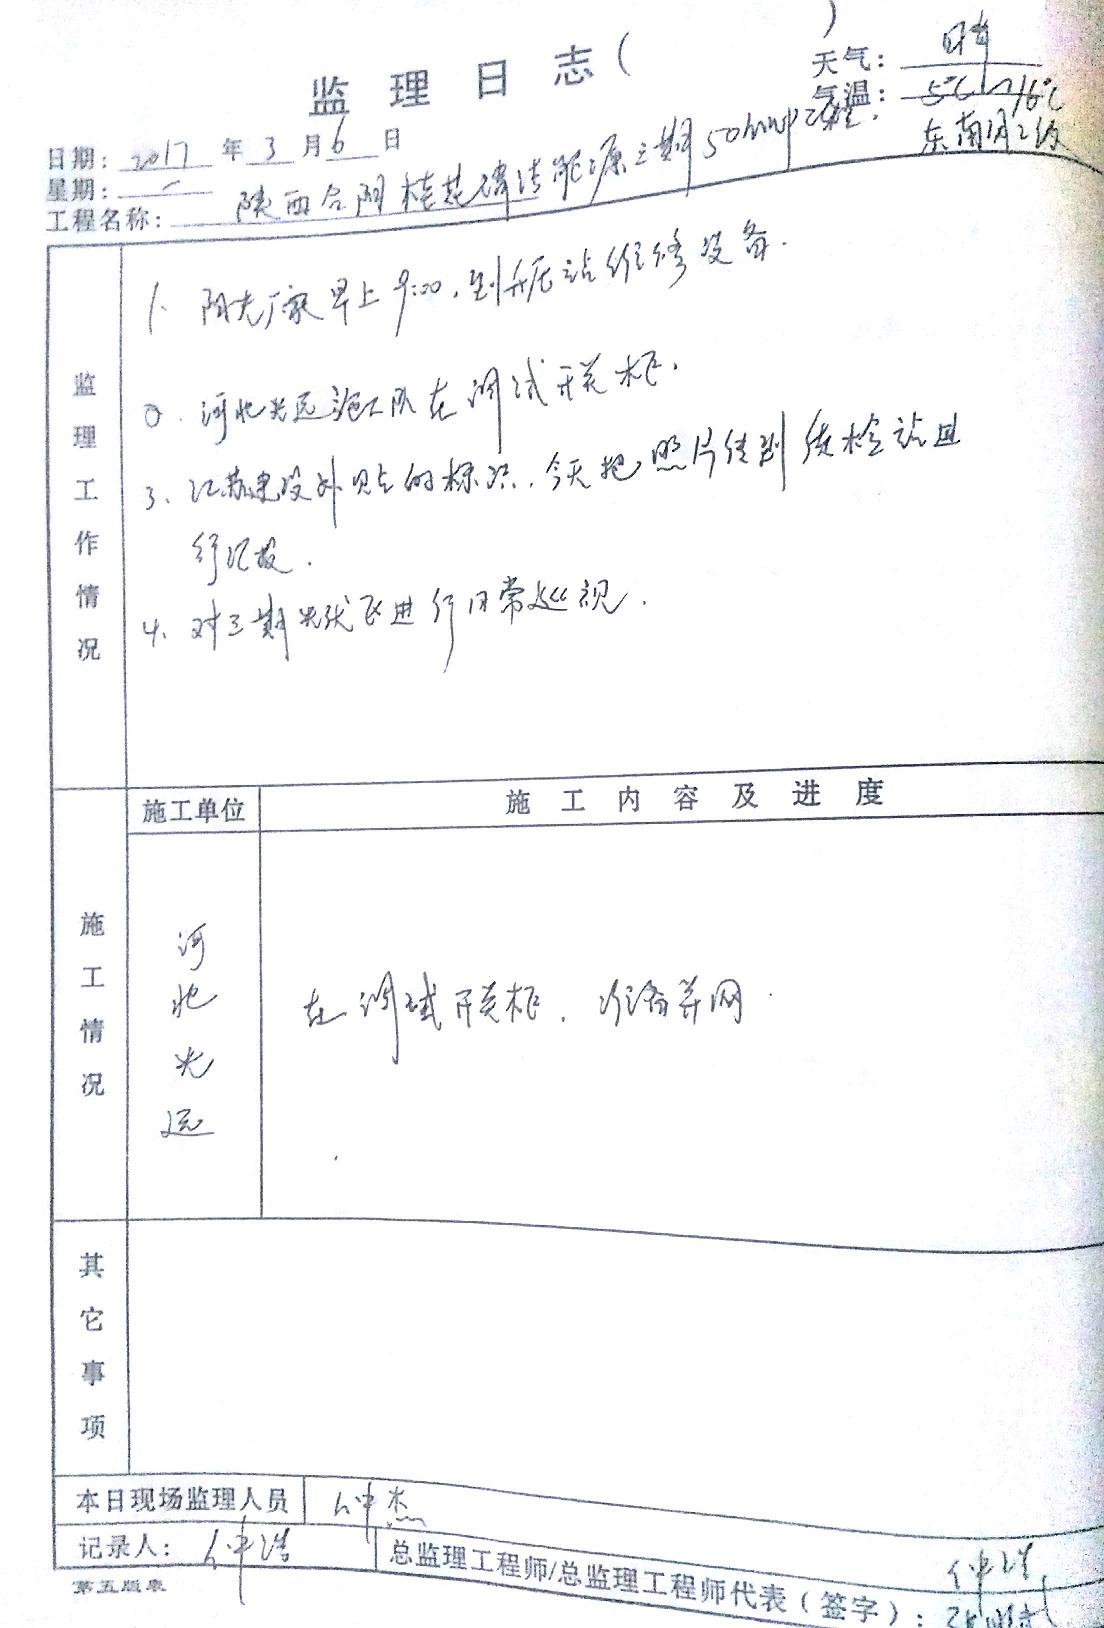 监理日志( )
天气：晴
气温：5℃~16℃
东南风2级
日期：2017年3月6日
星期：一
工程名称：陕西合阳桂花清洁能源三期50MWP工程.
监理工作情况
1. 阳光厂家早上9:00.到升压站维修设备.
2. 河北光远施工队在调试开关柜.
3、江苏建设外贴的标识.今天把照片传到质检站且
行汇报.
4、对三期光伏区进行日常巡视.
施工情况
施工单位
施工内容及进度
河北光远
在调试开关柜.准备并网.
其它事项
本日现场监理人员 仲杰
记录人：仲浩
总监理工程师/总监理工程师代表（签字）：仲浩
第五版表